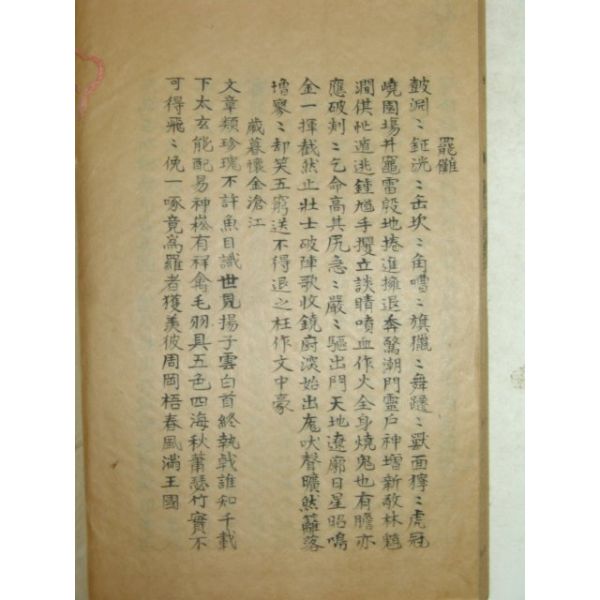 罷儺
鼓淵〻鉦洸〻缶坎〻角嘈〻旗獵〻舞躚〻獸面獰〻虎冠
嶢園場井竈雷殷地捲進擁退奔驚潮門靈戶神增新敬林魑
澗供忙遁逃鍾馗手攫立談睛噴血作火全身燒鬼也有膽亦
應破刻〻乞命高其尻急〻嚴〻驅出門天地遼廓日星昭鳴
金一揮截然止壯士破陣歌收鐃廚淡始出庬吠聲曠然籬落
增寥〻却笑五窮送不得退之枉作文中豪
歲暮懷金滄江
文章類珍瑰不許魚目識世見揚子雲白首終執戟誰知千載
下太玄能配易神崧有祥禽毛羽具五色四海秋蕭瑟竹實不
可得飛〻俛一啄竟爲羅者獲美彼周岡梧春風滿王國